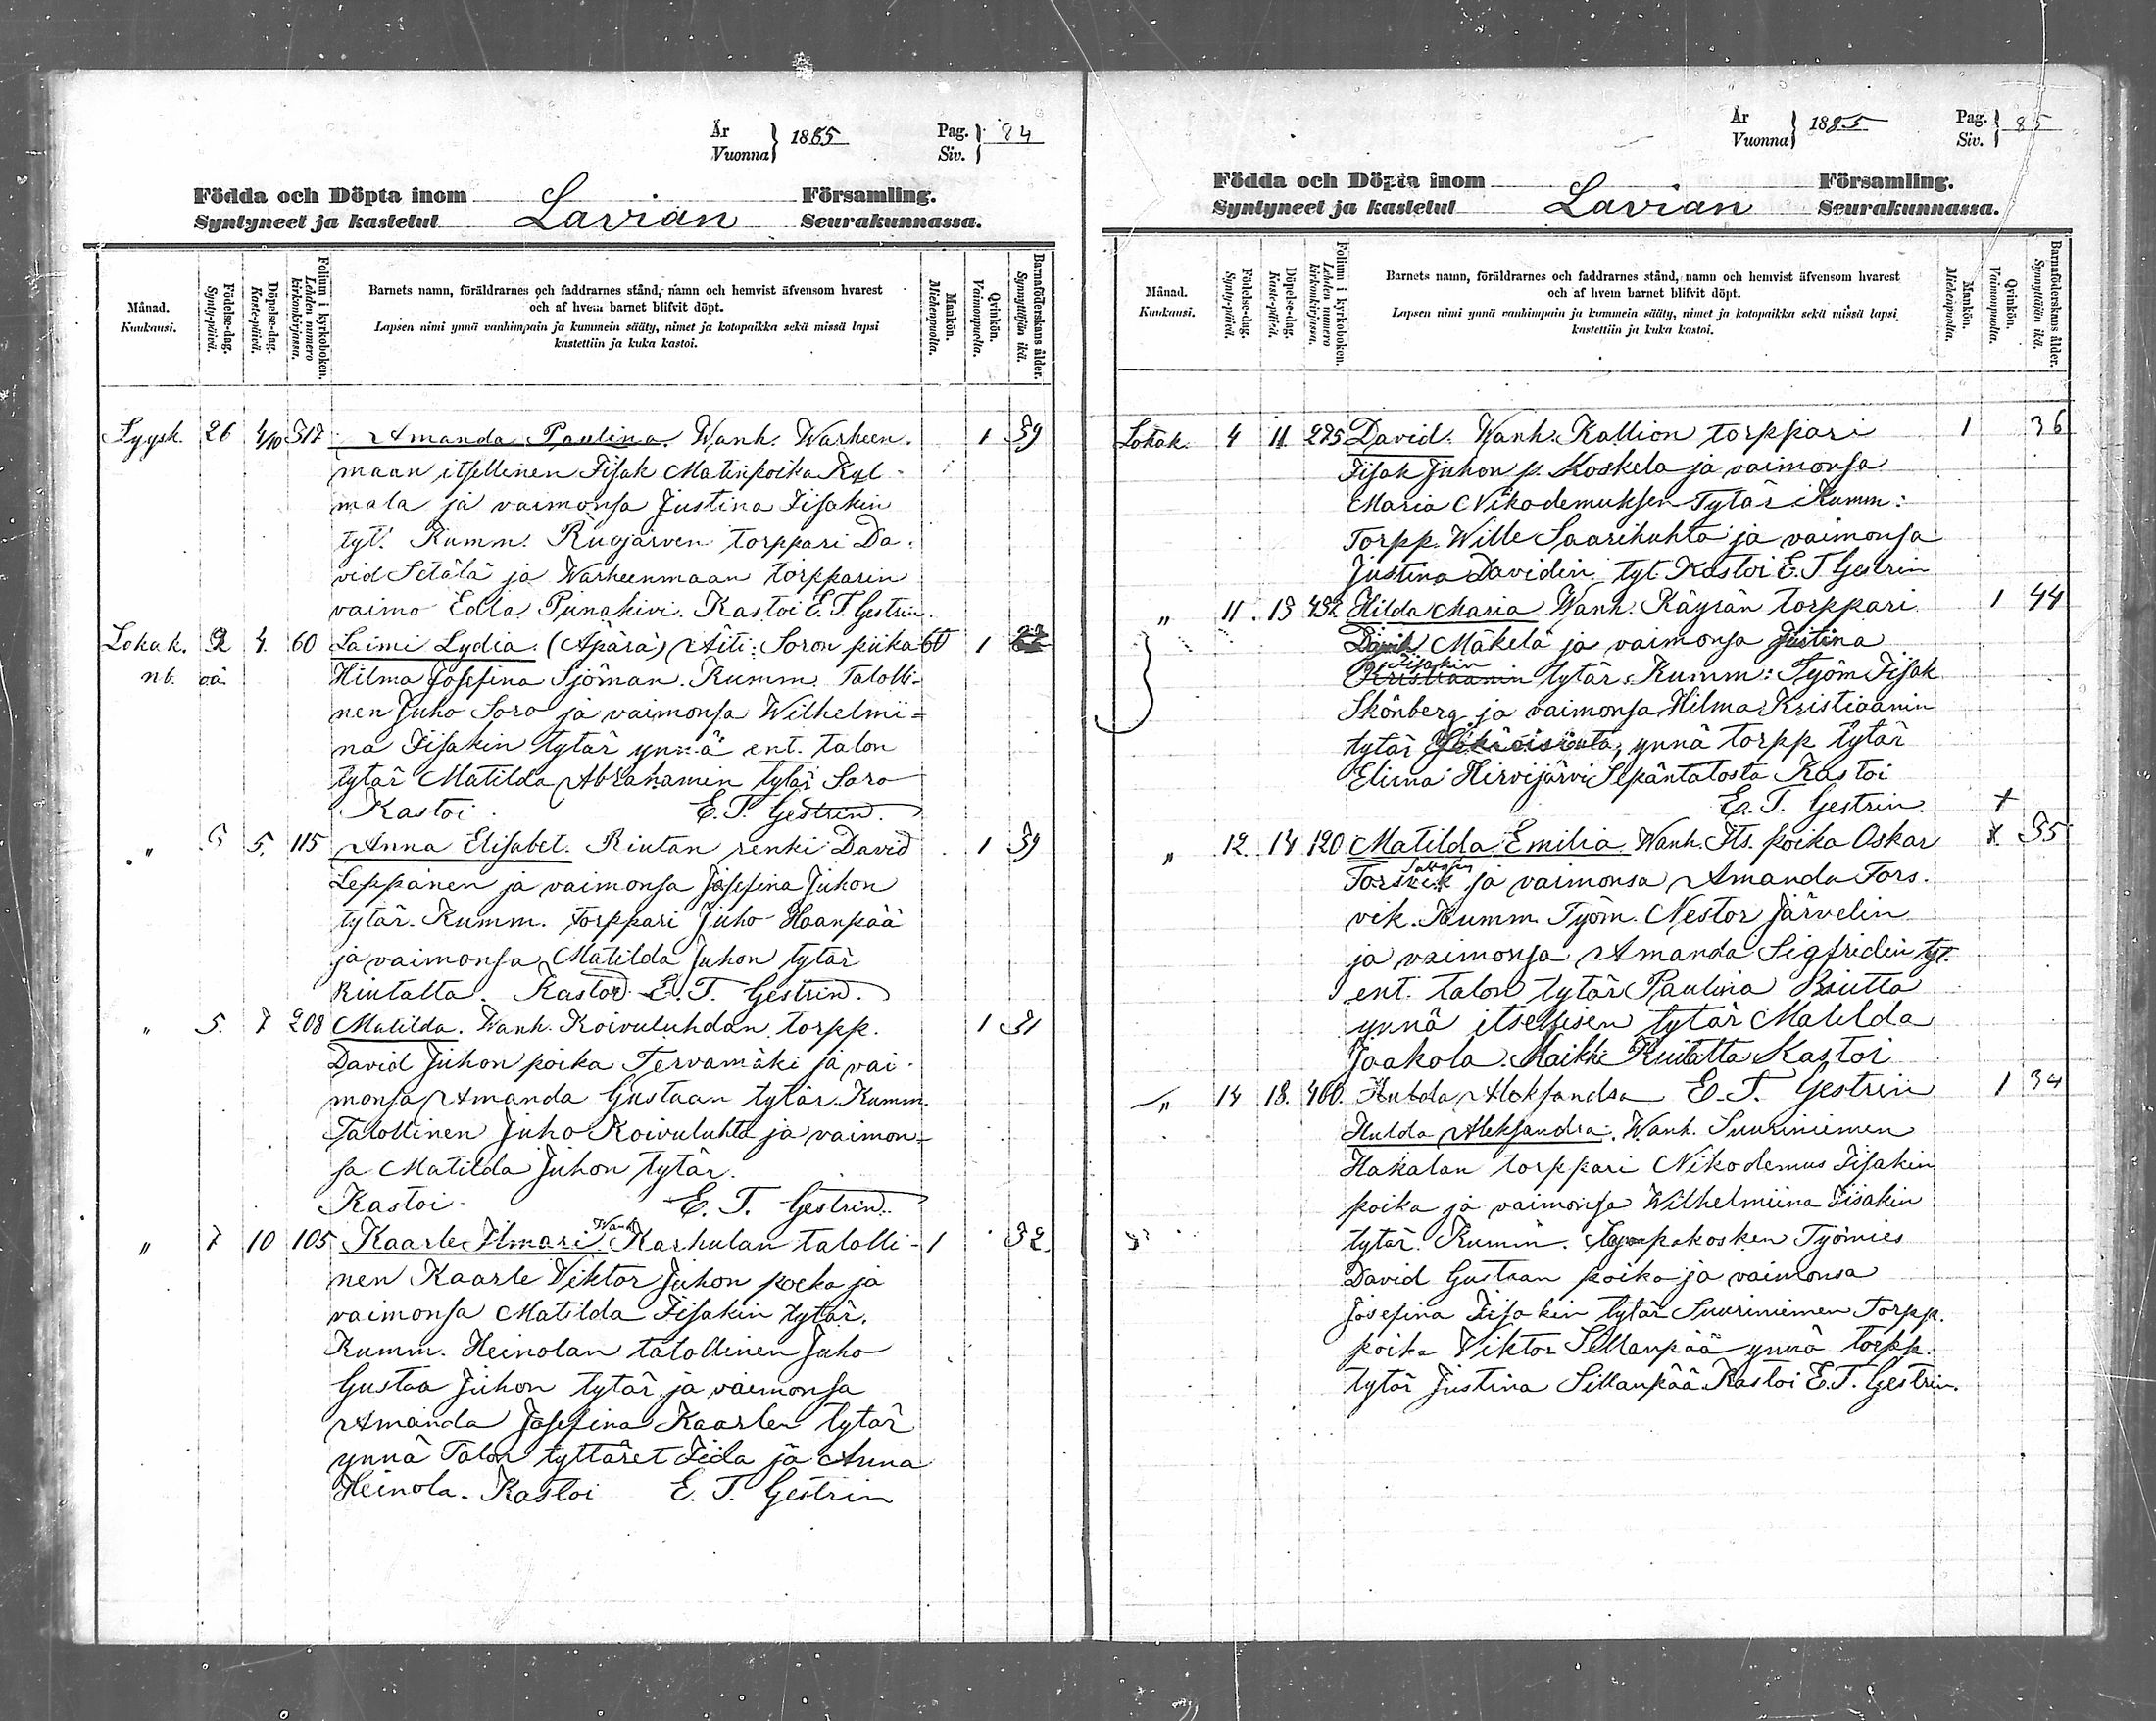 År Vuonna } 1885 Pag. Siv. } 84
Födda och Döpta inom Lavian Församling.
Syntyneet ja kastetut Seurakunnassa.
Månad. Kuukausi.
Födelse-dag. Synty-päivä.
Döpelse-dag. Kaste-päivä.
Folium i kyrkoboken. Lehden numero kirkonkirjassa.
Barnets namn, föräldrarnes och faddrarnes stånd, namn och hemvist äfvensom hvarest
och af hvem barnet blifvit döpt.
Lapsen nimi ynnä vanhimpain ja kummein sääty, nimet ja kotopaikka sekä missä lapsi
kastettiin ja kuka kastoi.
Mankön. Miehenpuolta.
Qvinkön. Vaimonpuolta.
Barnaföderskans ålder. Synnyttäjän ikä.
Syysk. 26 4/10 317 Amanda Paulina. Wanh. Warheen- 1 39
maan itsellinen Iisak Matinpoika Kyl-
mala ja vaimonsa Justina Iisakin
tyt. Kumm. Ruojärven torppari Da-
vid Setälä ja Warheenmaan torpparin
vaimo Edla Punakivi. Kastoi E. T. Gestrin.
Lokak. 2 4. 60 Laimi Lydia. (Äpärä) Äiti: Soron piika 60 1
nb. Hilma Josefina Sjöman. Kumm. Talolli-
nen Juho Soro ja vaimonsa Wilhelmi-
na Iisakin tytär ynnä ent. talon
tytär Matilda Abrahamin tytär Soro
Kastoi E. T. Gestrin.
" 5. 115 Anna Elisabet. Riutan renki David 1 39
Leppänen ja vaimonsa Josefina Juhon
tytär. Kumm. torppari Juho Haanpää
ja vaimonsa Matilda Juhon tytär
Riutalta. Kastoi E. T. Gestrin.
" 5. 7 208 Matilda. Wanh. Koivuluhdan torpp. 1 31
David Juhon poika Tervamäki ja vai-
monsa Amanda Gustaan tytär. Kumm.
Talollinen Juho Koivuluhta ja vaimon-
sa Matilda Juhon tytär.
Kastoi E. T. Gestrin.
" 7 10 105 Kaarle Ilmari. Wanh. Karhulan talolli- 1 32.
nen Kaarle Viktor Juhon poika ja
vaimonsa Matilda Iisakin tytär.
Kumm. Heinolan talollinen Juho
Gustaa Juhon tytär ja vaimonsa
Amanda Josefina Kaarlen tytär
ynnä Talon tyttäret Iida ja Anna
Heinola. Kastoi E. T. Gestrin
År Vuonna } 1885 Pag. Siv. } 85
Födda och Döpta inom Lavian Församling.
Syntyneet ja kastetut Seurakunnassa.
Månad. Kuukausi.
Födelse-dag. Synty-päivä.
Döpelse-dag. Kaste-päivä.
Folium i kyrkoboken. Lehden numero kirkonkirjassa.
Barnets namn, föräldrarnes och faddrarnes stånd, namn och hemvist äfvensom hvarest
och af hvem barnet blifvit döpt.
Lapsen nimi ynnä vanhimpain ja kummein sääty, nimet ja kotopaikka sekä missä lapsi
kastettiin ja kuka kastoi.
Mankön. Miehenpuolta.
Qvinkön. Vaimonpuolta.
Barnaföderskans ålder. Synnyttäjän ikä.
Lokak. 4 11 275 David. Wanh. Kallion torppari 1 36
Iisak Juhon p. Koskela ja vaimonsa
Maria Nikodemuksen Tytär Kumm:
Torpp. Wille Saarihuhta ja vaimonsa
Justina Davidin tyt. Kastoi E. T. Gestrin
" 11. 13 Hilda Maria. Wanh. Käyrän torppari 1 44
Mäkelä ja vaimonsa Justina
Iisakin
Kristiaanin tytär. Kumm: Työm Iisak
Skönberg ja vaimonsa Hilma Kristiaanin
tytär ynnä torpp tytär
Eliina Hirvijärvi Sepäntalosta Kastoi
E. T. Gestrin. +
" 12. 14 120 Matilda Emilia. Wanh. Its. poika Oskar x 35
Torsvik ja vaimonsa Amanda Fors-
vik. Kumm. Työm. Nestor Järvelin
ja vaimonsa Amanda Sigfridin tyt.
ent. talon tytär Paulina Riutta
ynnä itsellisen tytär Matilda
Jaakola. Kaikki Riutalta Kastoi
" 14 18. 460. Hulda Aleksandra E. T. Gestrin 1 34
Hulda Aleksandra. Wanh. Suuriniemen
Hakalan torppari Nikodemus Iisakin
poika ja vaimonsa Wilhelmiina Iisakin
tytär. Kumm. Työmies
David Gustaan poika ja vaimonsa
Josefina Iisakin tytär Suuriniemen Torpp.
poika Viktor Sillanpää ynnä torpp.
tytär Justina Sillanpää Kastoi E. T. Gestrin.